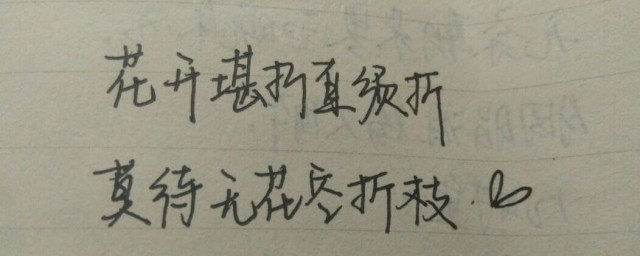 花开堪折直须折
莫待无花空折枝.